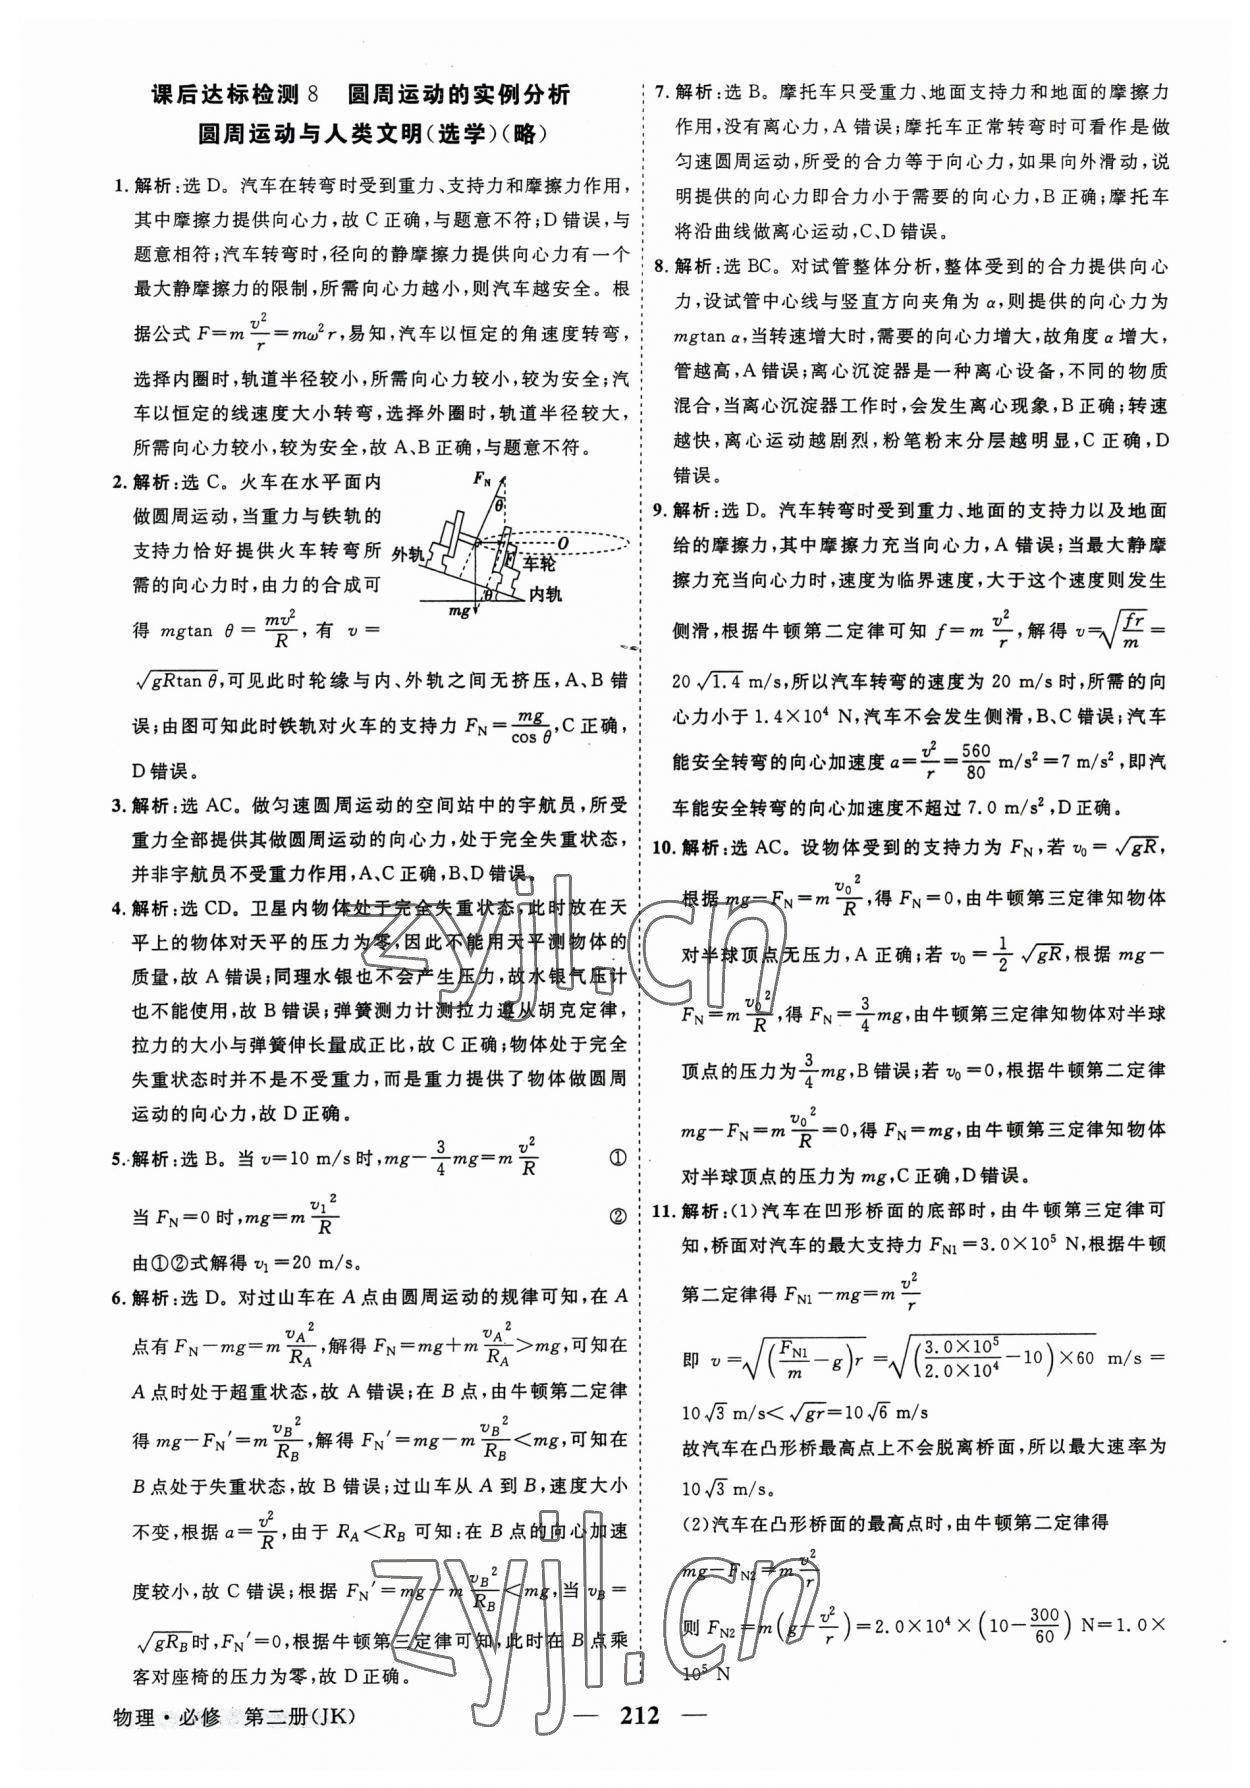 课后达标检测8　圆周运动的实例分析
圆周运动与人类文明(选学)(略)
1. 解析:选 D。汽车在转弯时受到重力、支持力和摩擦力作用,
其中摩擦力提供向心力,故 C 正确,与题意不符;D 错误,与
题意相符;汽车转弯时,径向的静摩擦力提供向心力有一个
最大静摩擦力的限制,所需向心力越小,则汽车越安全。根
据公式 F=m v²/r=mω²r,易知,汽车以恒定的角速度转弯,
选择内圈时,轨道半径较小,所需向心力较小,较为安全;汽
车以恒定的线速度大小转弯,选择外圈时,轨道半径较大,
所需向心力较小,较为安全,故 A、B 正确,与题意不符。
2. 解析:选 C。火车在水平面内
做圆周运动,当重力与铁轨的
支持力恰好提供火车转弯所
需的向心力时,由力的合成可
得 mgtan θ=mv²/R,有 v=
FN
θ
O
F
外轨
车轮
内轨
θ
mg
√(gRtan θ),可见此时轮缘与内、外轨之间无挤压,A、B 错
误;由图可知此时铁轨对火车的支持力 FN=mg/cos θ,C 正确,
D 错误。
3. 解析:选 AC。做匀速圆周运动的空间站中的宇航员,所受
重力全部提供其做圆周运动的向心力,处于完全失重状态,
并非宇航员不受重力作用,A、C 正确,B、D 错误。
4. 解析:选 CD。卫星内物体处于完全失重状态,此时放在天
平上的物体对天平的压力为零,因此不能用天平测物体的
质量,故 A 错误;同理水银也不会产生压力,故水银气压计
也不能使用,故 B 错误;弹簧测力计测拉力遵从胡克定律,
拉力的大小与弹簧伸长量成正比,故 C 正确;物体处于完全
失重状态时并不是不受重力,而是重力提供了物体做圆周
运动的向心力,故 D 正确。
5. 解析:选 B。当 v=10 m/s 时,mg-3/4 mg=m v²/R ①
当 FN=0 时,mg=m v₁²/R ②
由①②式解得 v₁=20 m/s。
6. 解析:选 D。对过山车在 A 点由圆周运动的规律可知,在 A
点有 FN-mg=m vA²/RA,解得 FN=mg+m vA²/RA>mg,可知在
A 点时处于超重状态,故 A 错误;在 B 点,由牛顿第二定律
得 mg-FN′=m vB²/RB,解得 FN′=mg-m vB²/RB<mg,可知在
B 点处于失重状态,故 B 错误;过山车从 A 到 B,速度大小
不变,根据 a=v²/R,由于 RA<RB 可知:在 B 点的向心加速
度较小,故 C 错误;根据 FN′=mg-m vB²/RB<mg,当 vB=
√(gRB)时,FN′=0,根据牛顿第三定律可知,此时在 B 点乘
客对座椅的压力为零,故 D 正确。
7. 解析:选 B。摩托车只受重力、地面支持力和地面的摩擦力
作用,没有离心力,A 错误;摩托车正常转弯时可看作是做
匀速圆周运动,所受的合力等于向心力,如果向外滑动,说
明提供的向心力即合力小于需要的向心力,B 正确;摩托车
将沿曲线做离心运动,C、D 错误。
8. 解析:选 BC。对试管整体分析,整体受到的合力提供向心
力,设试管中心线与竖直方向夹角为 α,则提供的向心力为
mgtan α,当转速增大时,需要的向心力增大,故角度 α 增大,
管越高,A 错误;离心沉淀器是一种离心设备,不同的物质
混合,当离心沉淀器工作时,会发生离心现象,B 正确;转速
越快,离心运动越剧烈,粉笔粉末分层越明显,C 正确,D
错误。
9. 解析:选 D。汽车转弯时受到重力、地面的支持力以及地面
给的摩擦力,其中摩擦力充当向心力,A 错误;当最大静摩
擦力充当向心力时,速度为临界速度,大于这个速度则发生
侧滑,根据牛顿第二定律可知 f=m v²/r,解得 v=√(fr/m)=
20√1.4 m/s,所以汽车转弯的速度为 20 m/s 时,所需的向
心力小于 1.4×10⁴ N,汽车不会发生侧滑,B、C 错误;汽车
能安全转弯的向心加速度 a=v²/r=560/80 m/s²=7 m/s²,即汽
车能安全转弯的向心加速度不超过 7.0 m/s²,D 正确。
10. 解析:选 AC。设物体受到的支持力为 FN,若 v₀=√(gR),
根据 mg-FN=m v₀²/R,得 FN=0,由牛顿第三定律知物体
对半球顶点无压力,A 正确;若 v₀=1/2 √(gR),根据 mg-
FN=m v₀²/R,得 FN=3/4 mg,由牛顿第三定律知物体对半球
顶点的压力为 3/4 mg,B 错误;若 v₀=0,根据牛顿第二定律
mg-FN=m v₀²/R=0,得 FN=mg,由牛顿第三定律知物体
对半球顶点的压力为 mg,C 正确,D 错误。
11. 解析:(1)汽车在凹形桥面的底部时,由牛顿第三定律可
知,桥面对汽车的最大支持力 FN1=3.0×10⁵ N,根据牛顿
第二定律得 FN1-mg=m v²/r
即 v=√((FN1/m-g)r)=√((3.0×10⁵/2.0×10⁴-10)×60) m/s=
10√3 m/s<√(gr)=10√6 m/s
故汽车在凸形桥最高点上不会脱离桥面,所以最大速率为
10√3 m/s。
(2)汽车在凸形桥面的最高点时,由牛顿第二定律得
mg-FN2=m v²/r
则 FN2=m(g-v²/r)=2.0×10⁴×(10-300/60) N=1.0×
10⁵ N
zyjl.cn
zyjl.cn
物理·必修　第二册(JK)
— 212 —